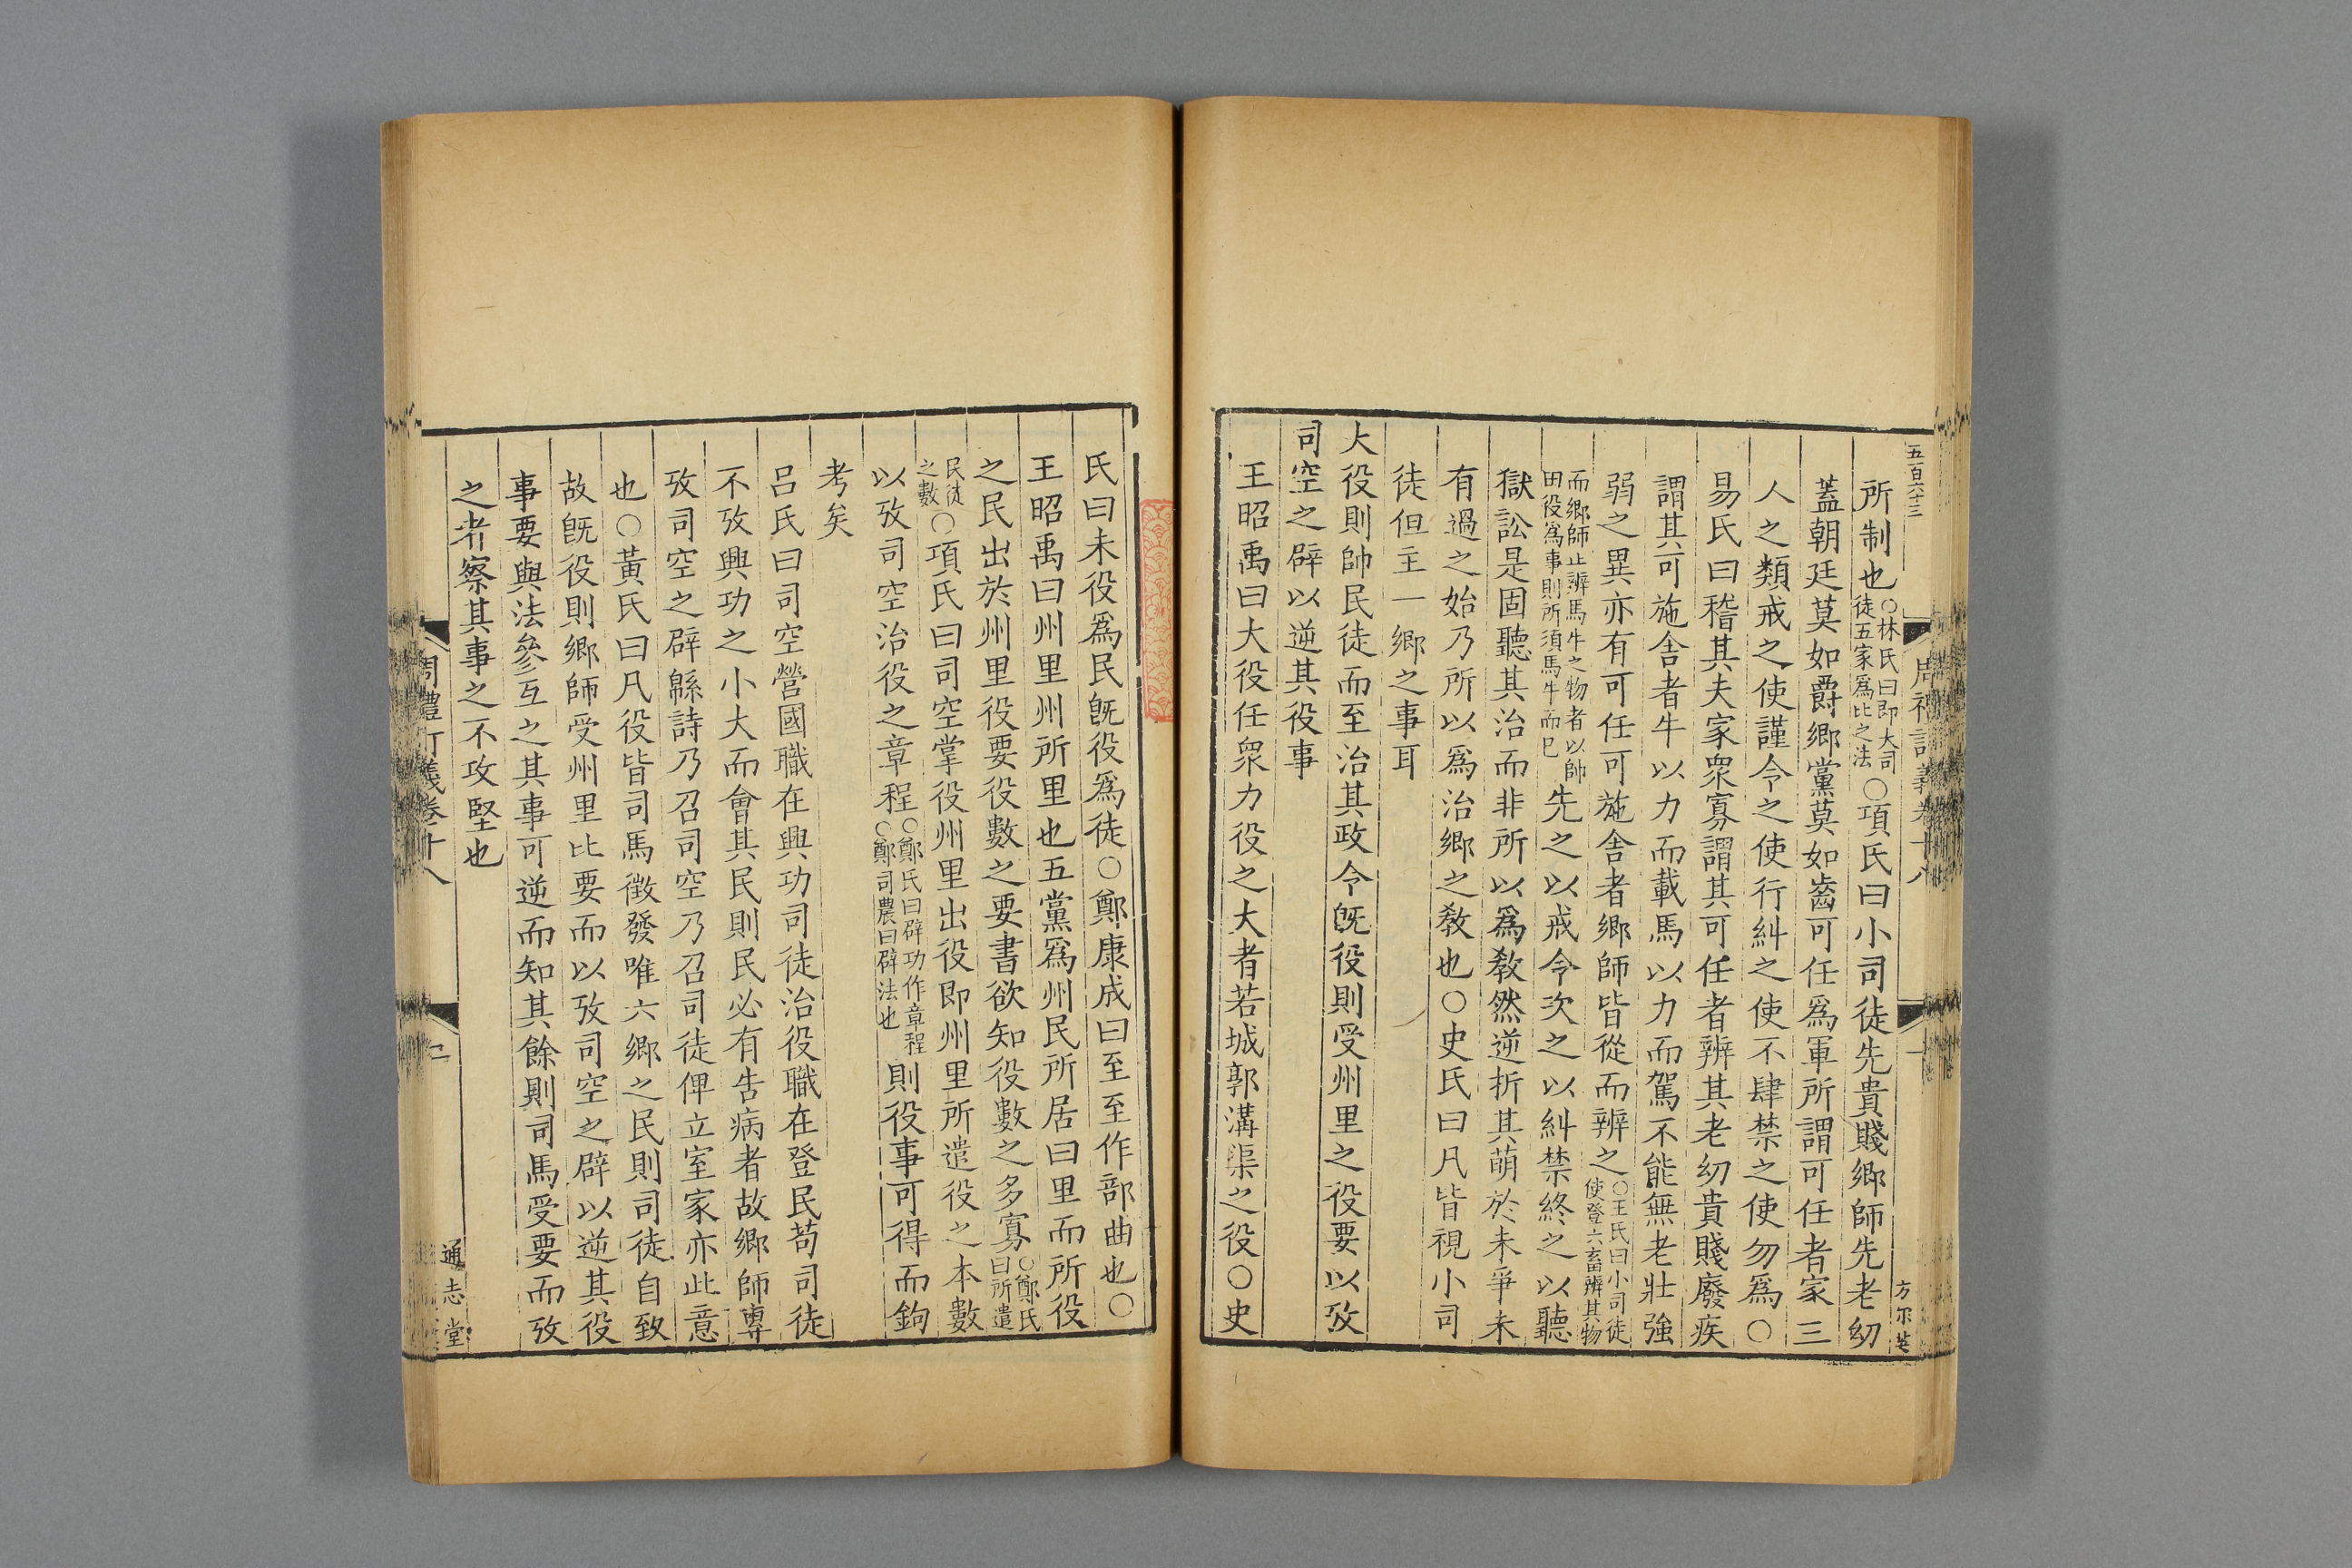 五百六十三
周禮訂義卷十八
一
方尔英
所制也○林氏曰即大司徒五家爲比之法○項氏曰小司徒先貴賤鄉師先老幼
蓋朝廷莫如爵鄉黨莫如齒可任爲軍所謂可任者家三
人之類戒之使謹令之使行糾之使不肆禁之使勿爲○
易氏曰稽其夫家衆寡謂其可任者辨其老幼貴賤廢疾
謂其可施舍者牛以力而載馬以力而駕不能無老壯強
弱之異亦有可任可施舍者鄉師皆從而辨之○王氏曰小司徒使登六畜辨其物
而鄉師止辨馬牛之物者以帥田役爲事則所須馬牛而已先之以戒令次之以糾禁終之以聽
獄訟是固聽其治而非所以爲敎然逆折其萌於未爭未
有過之始乃所以爲治鄉之敎也○史氏曰凡皆視小司
徒但主一鄉之事耳
大役則帥民徒而至治其政令旣役則受州里之役要以攷
司空之辟以逆其役事
王昭禹曰大役任衆力役之大者若城郭溝渠之役○史
氏曰未役爲民旣役爲徒○鄭康成曰至至作部曲也○
王昭禹曰州里州所里也五黨爲州民所居曰里而所役
之民出於州里役要役數之要書欲知役數之多寡○鄭氏曰所遣
民徒之數○項氏曰司空掌役州里出役即州里所遣役之本數
以攷司空治役之章程○鄭氏曰辟功作章程○鄭司農曰辟法也則役事可得而鉤
考矣
呂氏曰司空營國職在興功司徒治役職在登民苟司徒
不攷興功之小大而會其民則民必有告病者故鄉師專
攷司空之辟緜詩乃召司空乃召司徒俾立室家亦此意
也○黃氏曰凡役皆司馬徵發唯六鄉之民則司徒自致
故旣役則鄉師受州里比要而以攷司空之辟以逆其役
事要與法參互之其事可逆而知其餘則司馬受要而攷
之者察其事之不攻堅也
周禮訂義卷十八
二
通志堂